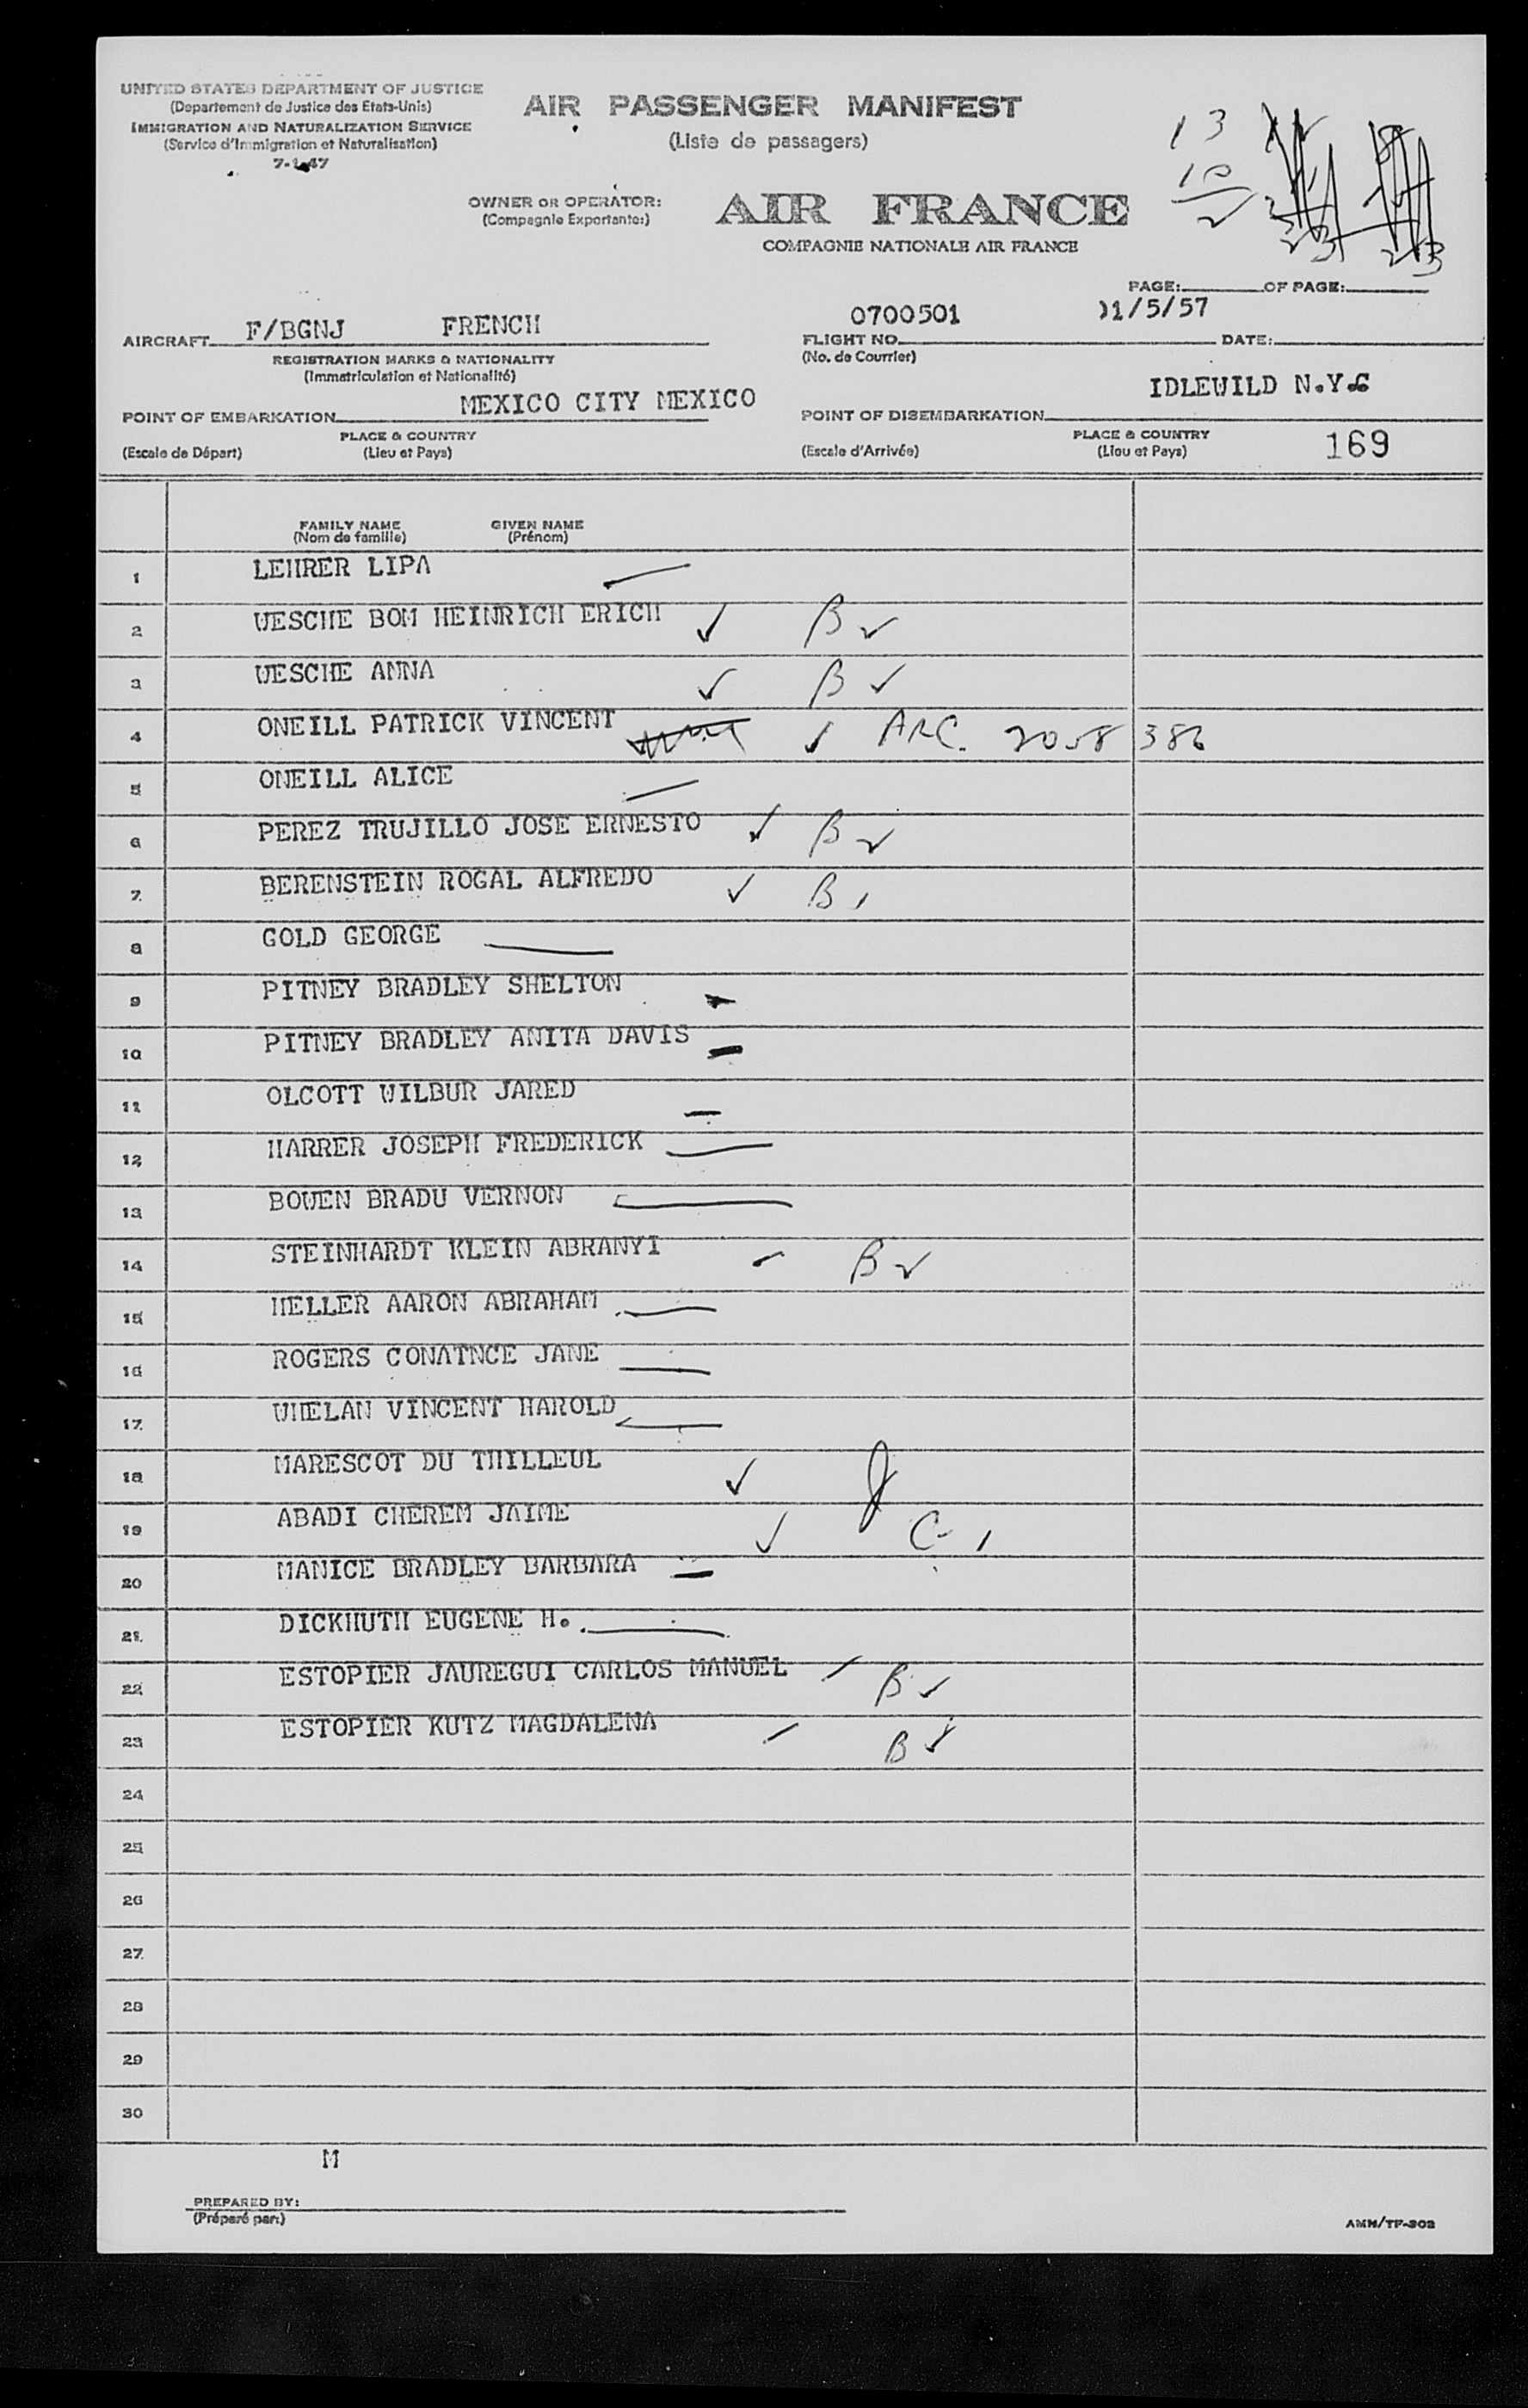 UNITED STATES DEPARTMENT OF JUSTICE
(Departement de Justice des Etats-Unis)
IMMIGRATION AND NATURALIZATION SERVICE
(Service d'Immigration et Naturalisation)
7-1-47
AIR PASSENGER MANIFEST
(Liste de passagers)
13
10
OWNER OR OPERATOR:
(Compagnie Exportante:)
AIR FRANCE
COMPAGNIE NATIONALE AIR FRANCE
PAGE: OF PAGE:
AIRCRAFT F/BGNJ FRENCH
REGISTRATION MARKS & NATIONALITY
(Immatriculation et Nationalité)
FLIGHT NO. 0700501 DATE: 1/5/57
(No. de Courrier)
POINT OF EMBARKATION MEXICO CITY MEXICO
PLACE & COUNTRY
(Escale de Départ) (Lieu et Pays)
POINT OF DISEMBARKATION IDLEWILD N.Y.C
PLACE & COUNTRY
(Escale d'Arrivée) (Lieu et Pays)
169
FAMILY NAME GIVEN NAME
(Nom de famille) (Prénom)
1 LEHRER LIPA
2 WESCHE BOM HEINRICH ERICH ✓ B ✓
3 WESCHE ANNA ✓ B ✓
4 ONEILL PATRICK VINCENT ✓ ARC. 2058 386
5 ONEILL ALICE
6 PEREZ TRUJILLO JOSE ERNESTO ✓ B ✓
7 BERENSTEIN ROGAL ALFREDO ✓ B
8 GOLD GEORGE
9 PITNEY BRADLEY SHELTON
10 PITNEY BRADLEY ANITA DAVIS
11 OLCOTT WILBUR JARED
12 HARRER JOSEPH FREDERICK
13 BOWEN BRADU VERNON
14 STEINHARDT KLEIN ABRANYI B ✓
15 HELLER AARON ABRAHAM
16 ROGERS CONATNCE JANE
17 WHELAN VINCENT HAROLD
18 MARESCOT DU THILLEUL ✓
19 ABADI CHEREM JAIME ✓ C-1
20 MANICE BRADLEY BARBARA
21 DICKHUTH EUGENE H.
22 ESTOPIER JAUREGUI CARLOS MANUEL B ✓
23 ESTOPIER KUTZ MAGDALENA B ✓
24
25
26
27
28
29
30
M
PREPARED BY:
(Préparé par:)
AMN/TF-302